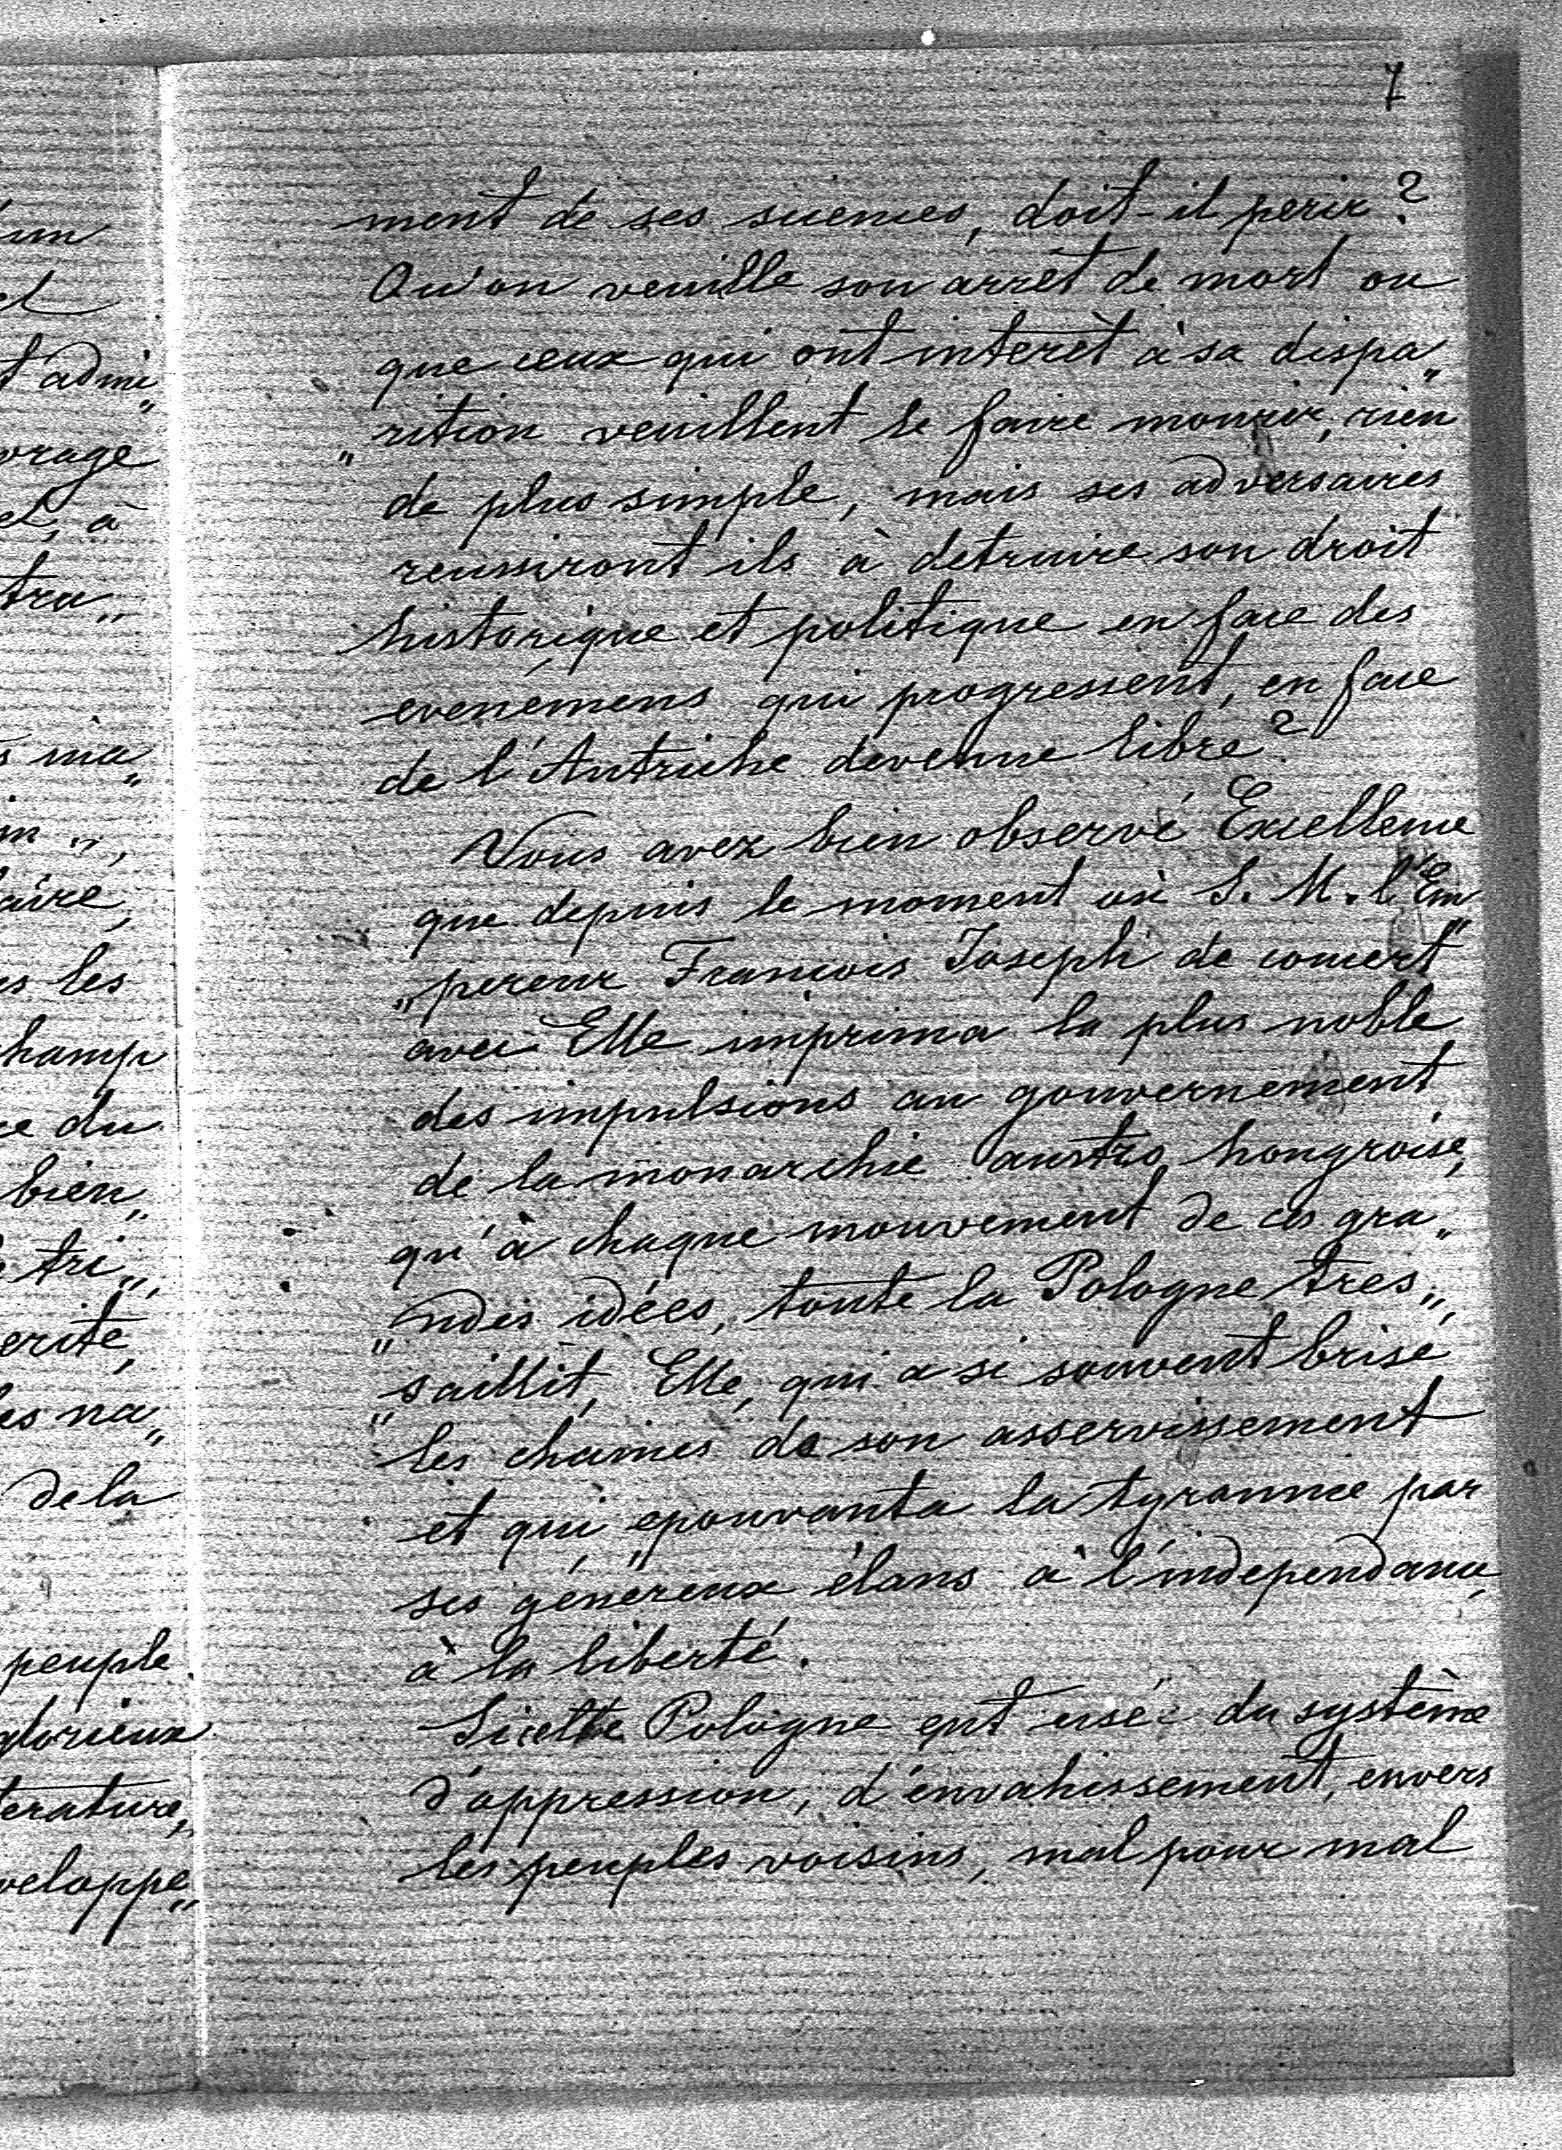 7
ment de ses sciences, doit-il perir?
Qu'on veuille son arrêt de mort ou
que ceux qui ont interèt à sa dispa„
„rition veuillent le faire mourir, rien
de plus simple, mais ses adversaires
reussiront ils à detruire son droit
historique et politique en face des
evenémens qui progressent, en face
de l'Autriche devenue libre?
Vous avez bien observé Excellence
que depuis le moment où S. M. l'Em„
„pereur Francois Joseph de concert
avec Elle imprima la plus noble
des impulsions au gouvernement
de la monarchie austro hongroise,
qu'à chaque mouvement de ces gra„
„ndes idées, toute la Pologne tres„
„saillit, Elle, qui a si souvent brisé
les chaines de son asservissement
et qui épouvanta la tyrannie par
ses généreux élans à l'independance,
à la liberté.
Si cette Pologne eut usée du système
d'oppression, d'envahissement, envers
les peuples voisins, mal pour mal
un
t admi„
vrage
à
tru„
ma„
aire,
les
champ
du
bien„
tri„
erité,
es na„
de la
peuple
glorieux
terature,
veloppe„